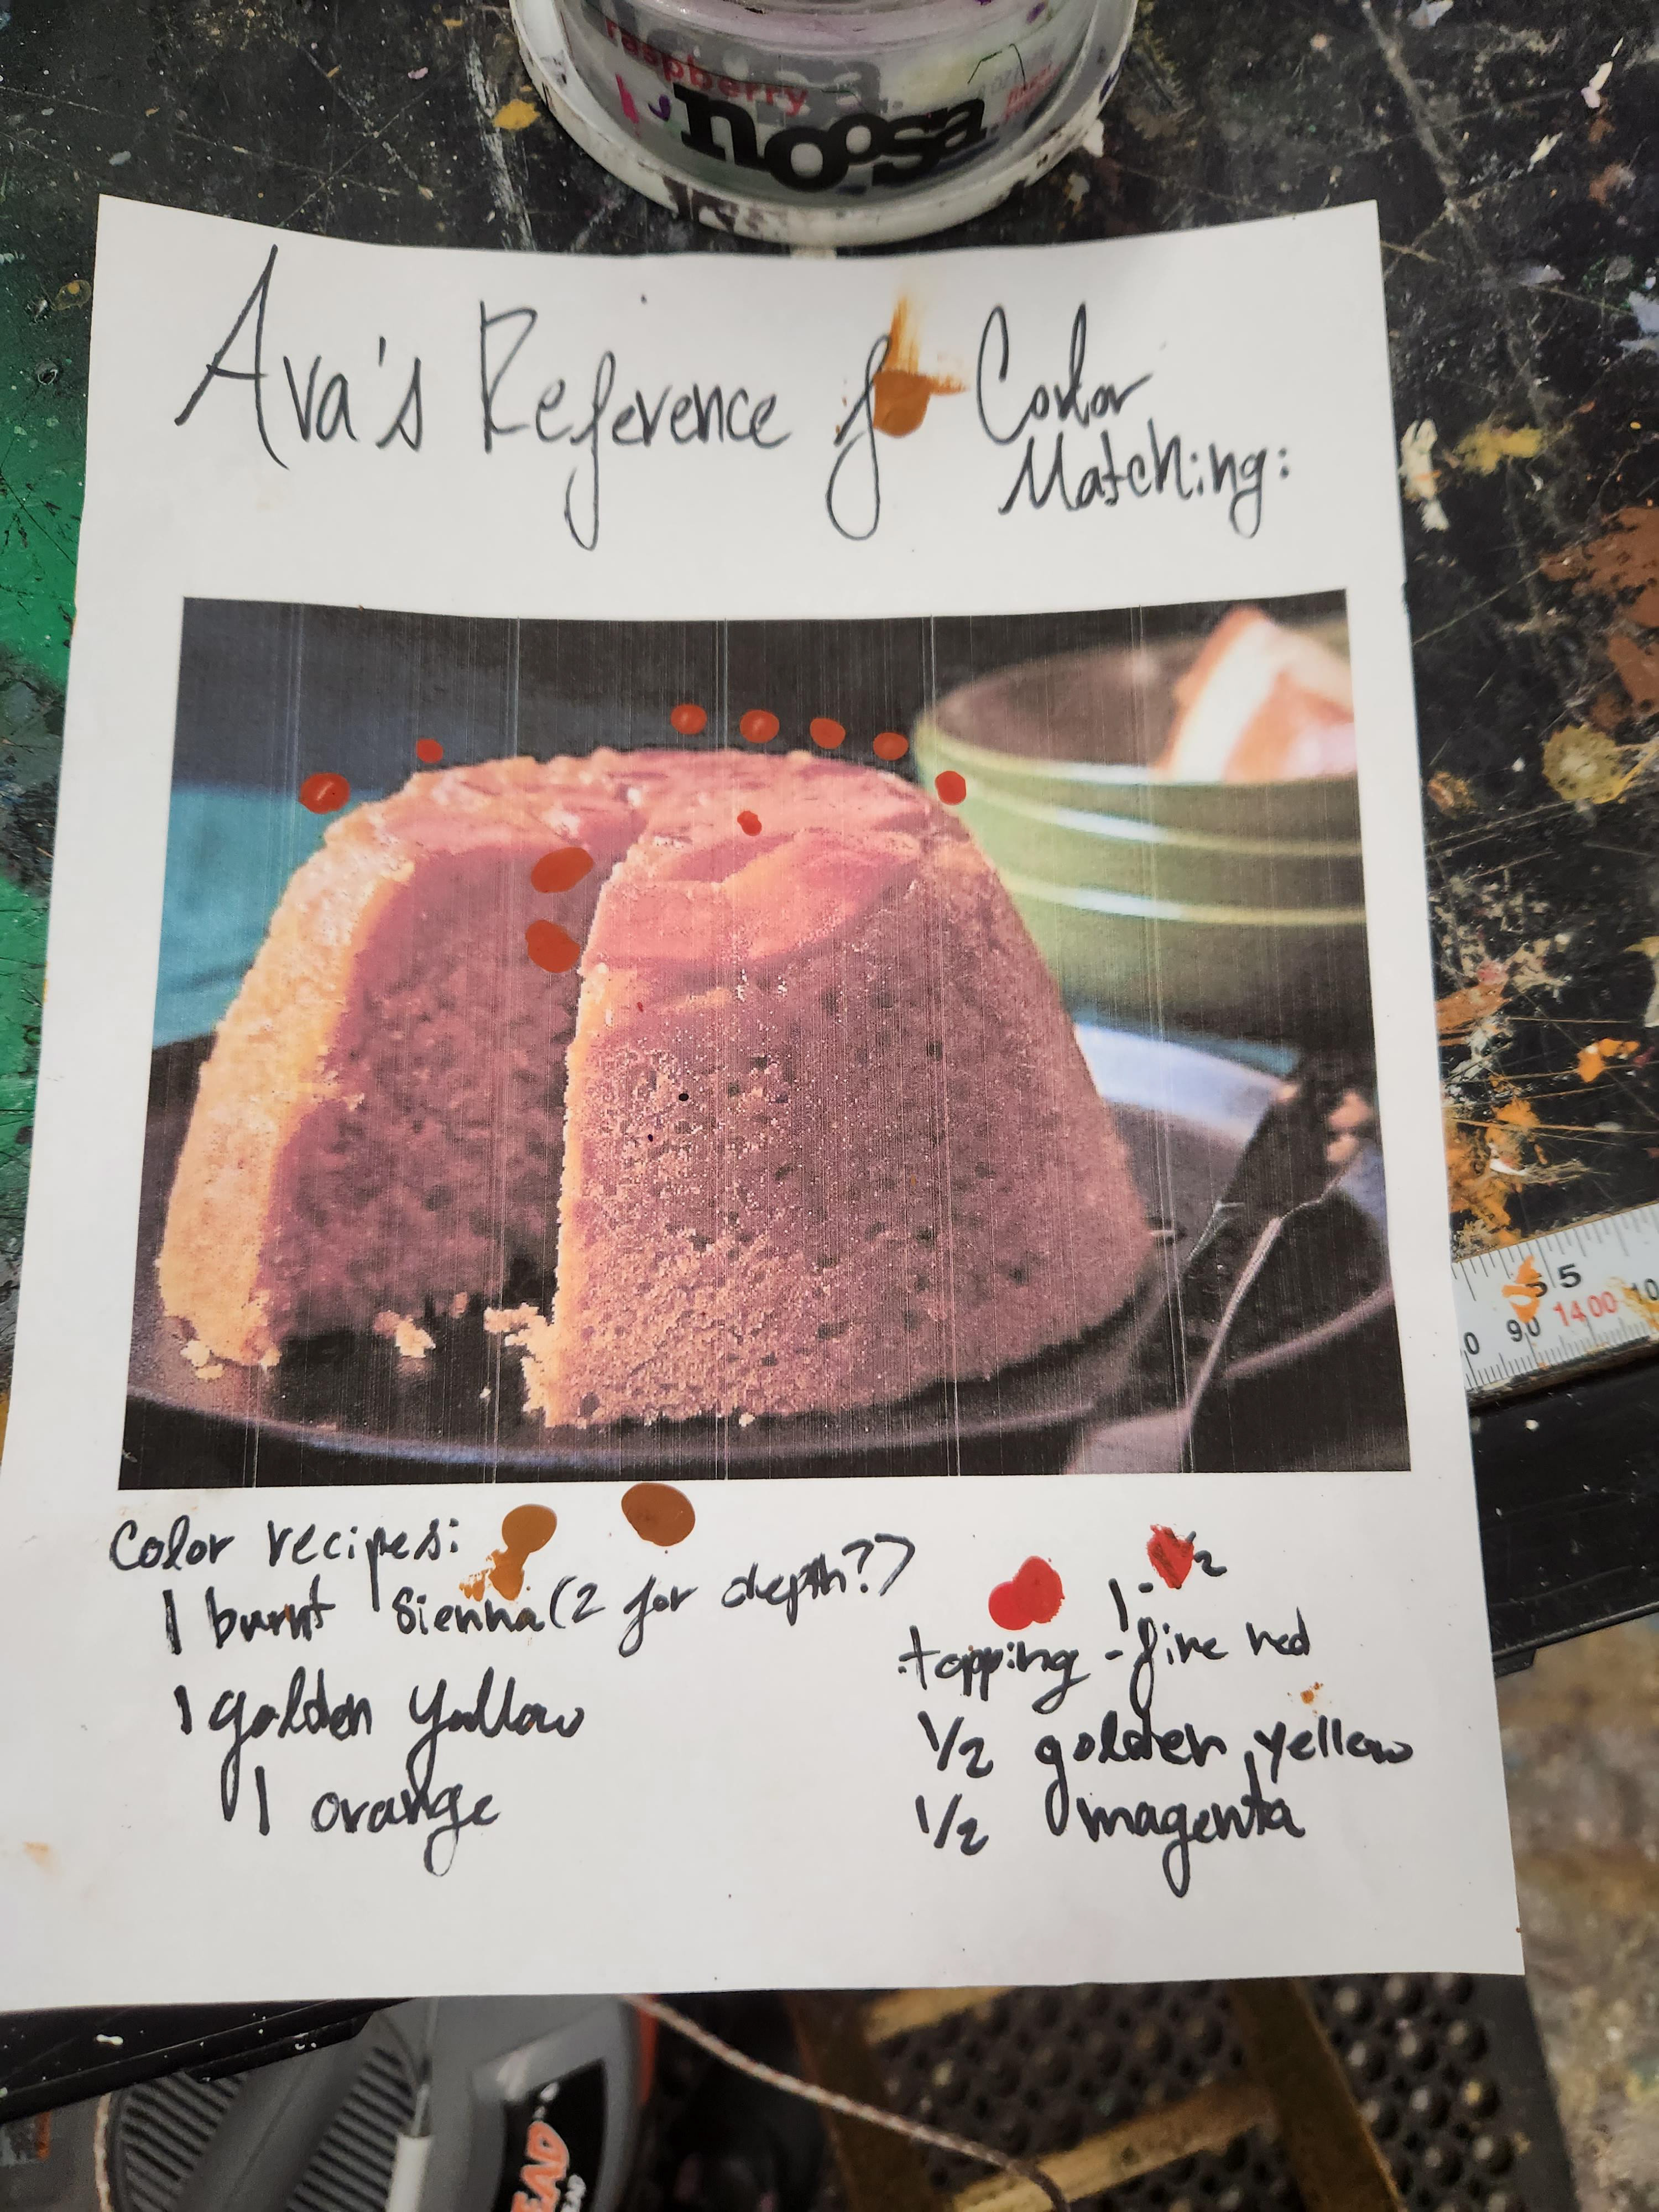 raspberry
noosa
Ava's Reference Color
Matching:
Color recipes:
1 burnt Sienna (2 for depth??
1 golden yellow
1 orange
1-
topping - fire red
1/2 golden yellow
1/2 magenta
5
1400
90
EAD